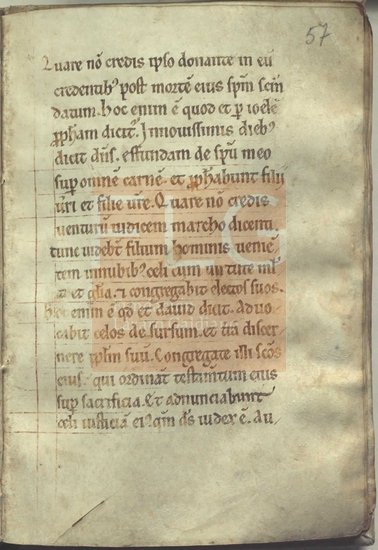 57
Quare nō credis ipso donante in eū
credentib' post mortē eius spm̄ scm̄
datum. hoc enim ē quod et p ioele
ppham dicit'. Innouissimis dieb'
dicit dn̄s. effundam de spū meo
sup omnē carnē. et ꝓphabunt filii
ūri et filie ūre. Quare nō credis
uenturū iudicem marcho dicenti.
tunc uidebt filium hominis ueniē
tem innubib' celi cum uirtute
et glīa. ⁊ congregabit electos suos.
hoc enim ē qd et dauid dicit. Aduo
cabit celos de sursum. et t̄rā discer
nere ipłm suū. Congregate illi scōs
eius. qui ordināt testam̄tum eius
sup sacrificia. Et adnunciabunt
celi iusticiā ei'. qm̄ ds̄ iudex ē. Au